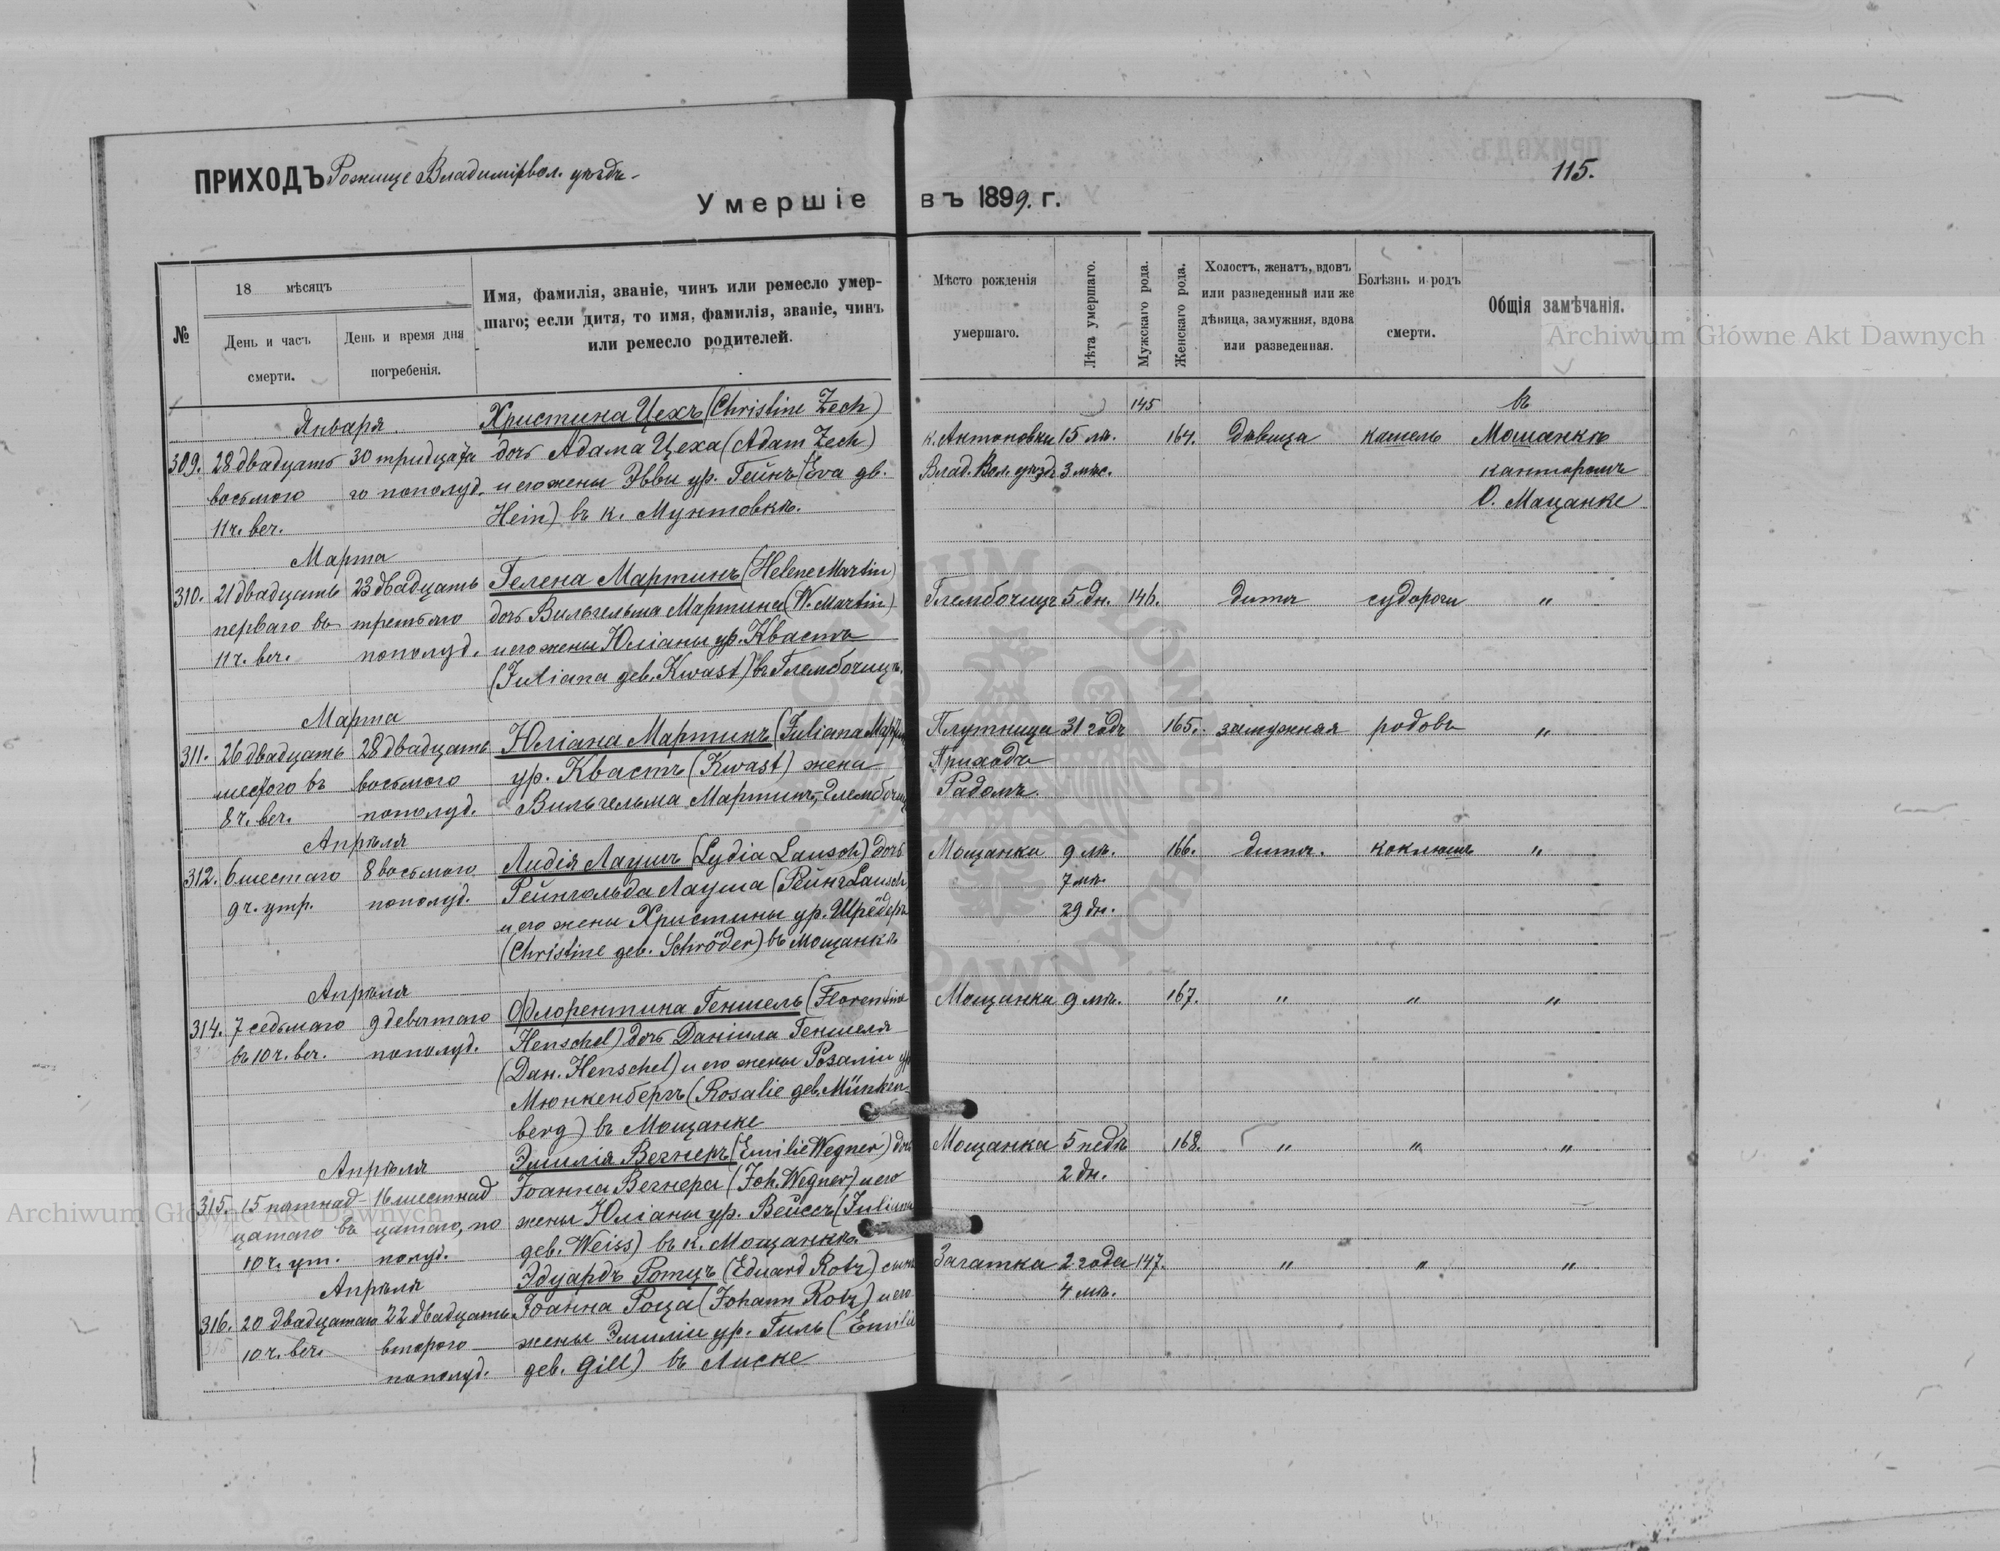 ПРИХОДЪ Рожище Владимірвол. уѣздъ
115.
Умершіе въ 1899. г.
№
18 мѣсяцъ
День и часъ смерти.
День и время дня погребенія.
Имя, фамилія, званіе, чинъ или ремесло умер-
шаго; если дитя, то имя, фамилія, званіе, чинъ
или ремесло родителей.
Мѣсто рожденія
умершаго.
Лѣта умершаго.
Мужскаго рода.
Женскаго рода.
Холостъ, женатъ, вдовъ
или разведенный или же
дѣвица, замужняя, вдова
или разведенная.
Болѣзнь и родъ
смерти.
Общія замѣчанія.
Archiwum Główne Akt Dawnych
Января Христина Цехъ (Christine Zech) 145 въ
309. 28 двадцать 30 тридцата дочь Адама Цеха (Adam Zech) к. Антоновки 15 лѣ. 164. дѣвица кашель Мощанкѣ
восьмого го пополуд. и его жены Эввы ур. Гейнъ (Eva gb. Влад. Вол. уѣздъ 3 мѣс. канторомъ
11 ч. веч. Hein) въ к. Мунтовкѣ. О. Мацанке
Марта
310. 21 двадцать 23 двадцать Гелена Мартинъ (Helene Martin) Глембочицъ 5 дн. 146. дитя судороги "
перваго въ третьяго дочь Вильгельма Мартина (W. Martin)
11 ч. веч. пополуд. и его жены Юліаны ур. Квастъ
(Juliana geb. Kwast) въ Глембочицъ.
Марта
311. 26 двадцать 28 двадцать Юліана Мартинъ (Juliana Плутница 31 годъ 165. замужняя родовъ "
шестого въ восьмого ур. Квастъ (Kwast) жена Приходъ
8 ч. веч. пополуд. Вильгельма Мартинъ, Радомъ.
Апрѣля
312. 6 шестаго 8 восьмого Лидія Лаушъ (Lydia Lausch) дочь Мощанка 9 лѣ. 166. дитя. коклюшъ "
9 ч. утр. пополуд. Рейнгольда Лауша (Рейнг Lausch) 7 мѣ.
и его жены Христины ур. Шрёдеръ 29 дн.
(Christine geb. Schröder) въ Мощанкѣ
Апрѣля
314. 7 седьмаго 9 девятаго Флорентина Геншель (Florentine Мощанка 9 мѣ. 167. " " "
въ 10 ч. веч. пополуд. Henschel) дочь Даніила Геншеля
(Дан. Henschel) и его жены Розаліи ур
Мюнкенбергъ (Rosalie geb. Münken
berg) въ Мощанке
Апрѣля Эмилія Вегнеръ (Emilie Wegner) дочь Мощанка 5 недѣ 168. " " "
315. 15 пятнад- 16 шестнад Іоанна Вегнера (Joh. Wegner) и его 2 дн.
цатаго въ цатаго, по жены Юліаны ур. Вейссъ (Juliana
10 ч. ут. полуд. geb. Weiss) въ к. Мощанкѣ.
Апрѣля Эдуардъ Ротцъ (Eduard Rotz) сынъ Загатка 2 года 147. " " "
316. 20 двадцатаго 22 двадцать Іоанна Роца (Johann Rotz) и его 4 мѣ.
10 ч. веч. второго жены Эмиліи ур. Гиль (Emilie
пополуд. geb. Gill) въ Лиске
Archiwum Główne Akt Dawnych